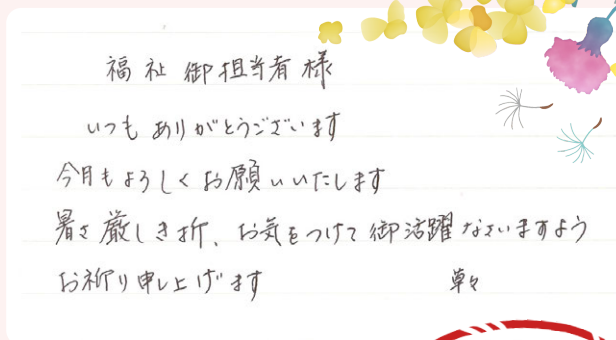 福祉御担当者様
いつもありがとうございます
今月もよろしくお願いいたします
暑さ厳しき折、お気をつけて御活躍なさいますよう
お祈り申し上げます 草々